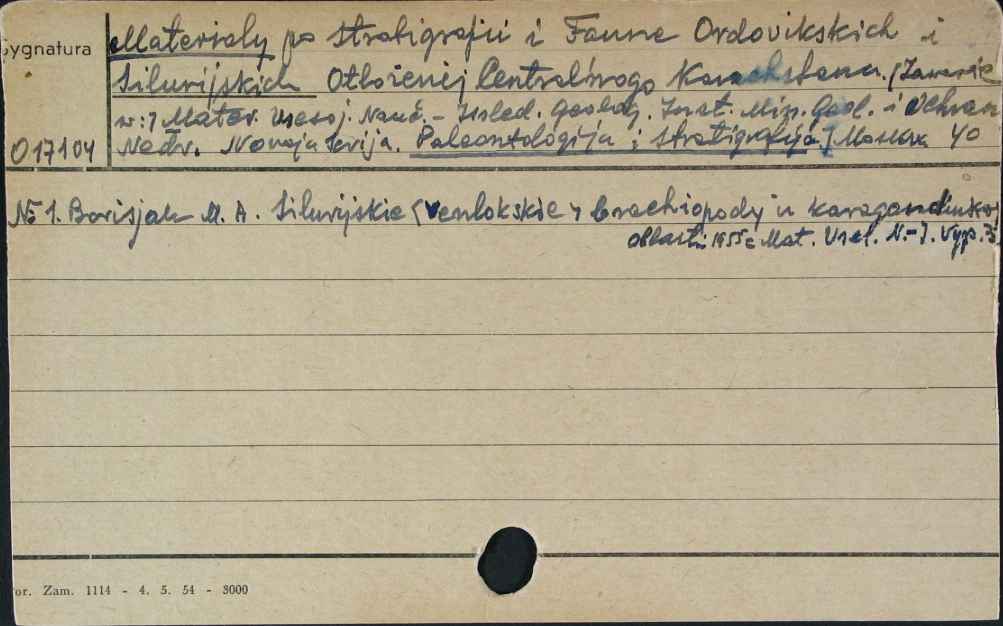 Sygnatura
Materialy po stratigrafii i Faune Ordovikskich i
Silurijskich Otłożenij Centralnogo Kazachstana. (Zawarte
w:) Mater. Vsesoj. Nauč.- Issled. Geolog. Inst. Min. Geol. i Ochran
017104 Nedr. Novaja Serija. Paleontologija i stratigrafija.) Moskva
№ 1. Borisjak M. A. Silurijskie (venlokskie) brachiopody
oblasti 1955 Mat. Vsel. N.-I. Vyp. 5
or. Zam. 1114 - 4. 5. 54 - 3000